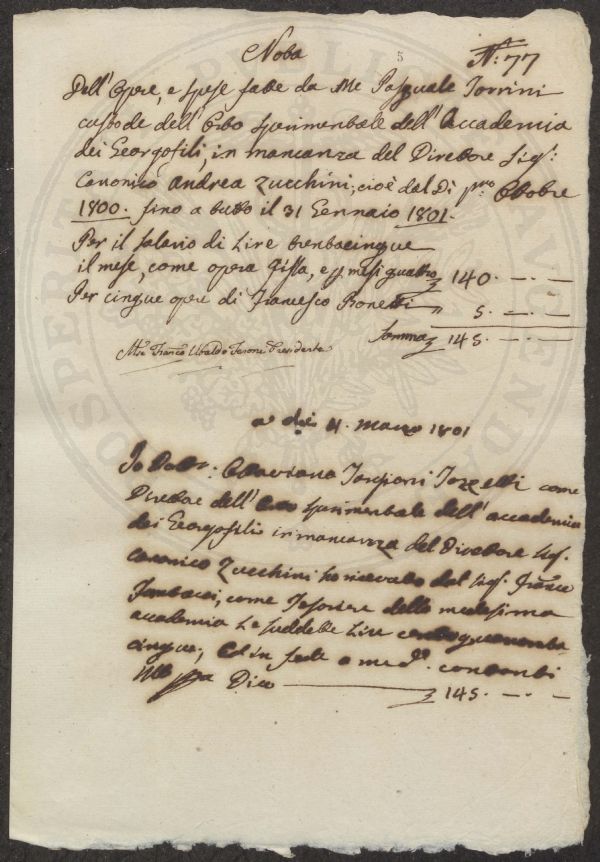 Nota
5
N.° 77
Dell'Opere, e spese fatte da Me Pasquale Torrini
custode dell'Orto sperimentale dell'Accademia
dei Georgofili, in mancanza del Direttore Sig.
Canonico Andrea Zucchini, cioè dal Dì pmo Ottobre
1800. sino a tutto il 31 Gennaio 1801.
Per il salario di Lire trentacinque
il mese, come opera fissa, e p mesi quattro 140. —.—
Per cinque opere di Francesco Bonetti " 5. —.—
Somma 145. —.—
Mse Franco Ubaldo Feroni Presidente
a dì 4. Marzo 1801
Io Dottr. Ottaviano Targioni Tozzetti come
Direttore dell'Orto sperimentale dell'accademia
dei Georgofili in mancanza del Direttore Sig.
canonico Zucchini ho ricevuto dal Sig. Franco
Tambacci, come Tesoriere della medesima
accademia Le suddette Lire centoquaranta
cinque, Ed in fede a me d. contanti
Mo ppa Dico — 145. —.—
PROSPERITATI PUBLICAE AUGENDAE